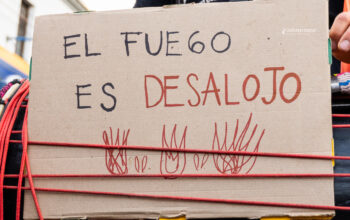 EL FUEGO
ES DESALOJO